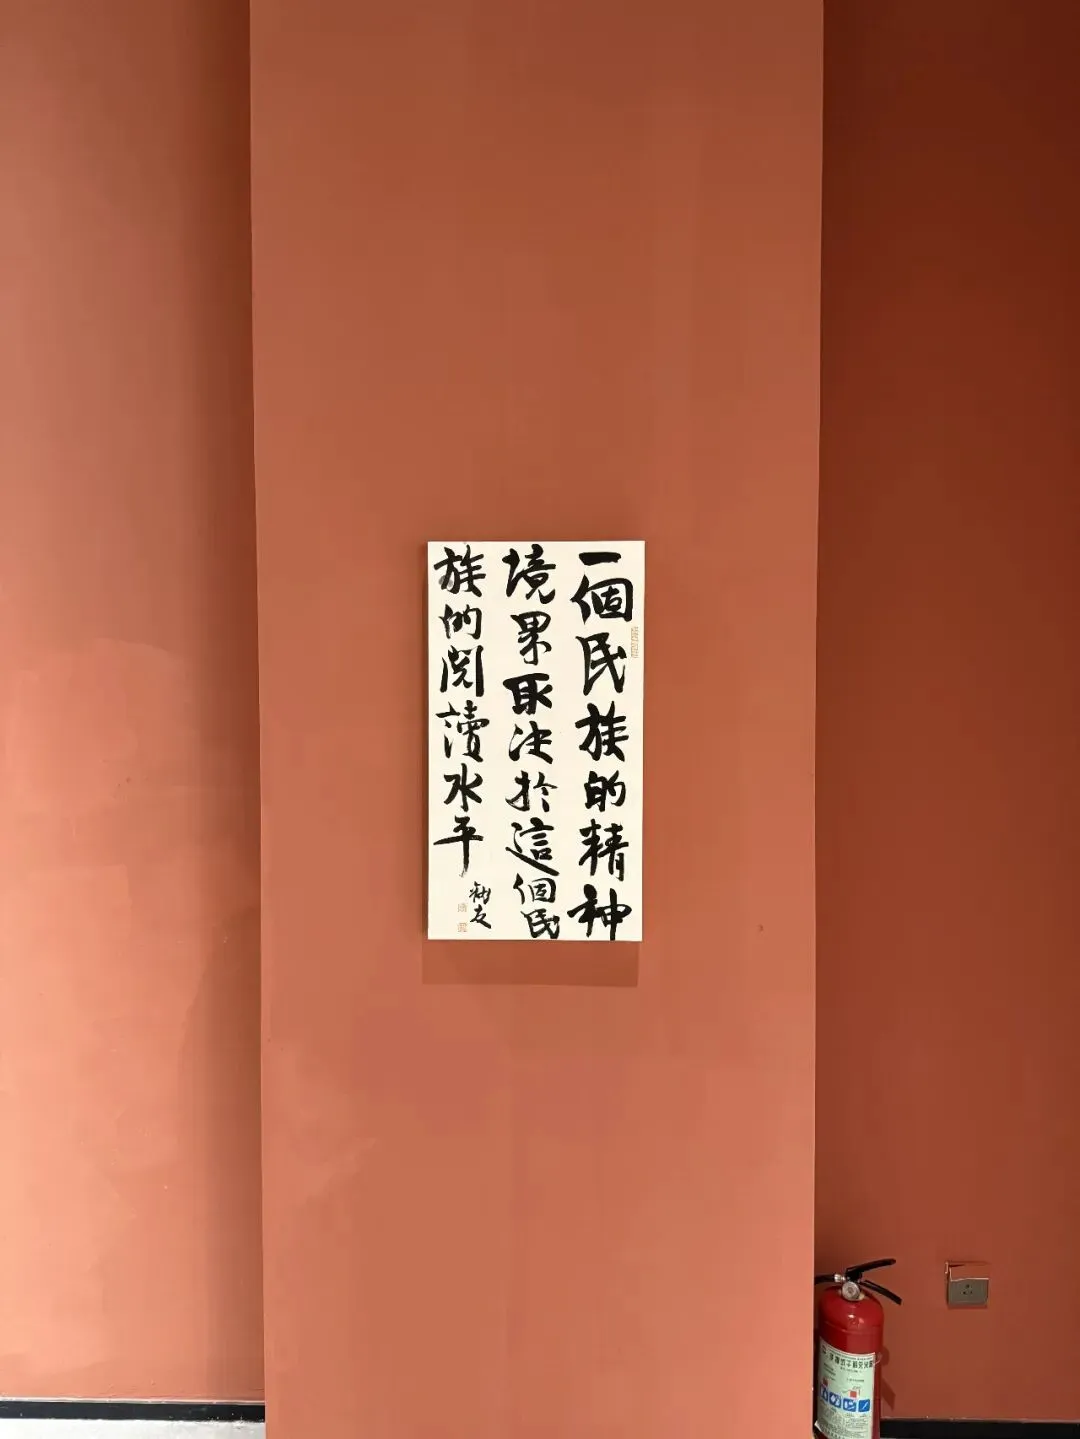 一個民族的精神
境界取决於這個民
族的閱讀水平